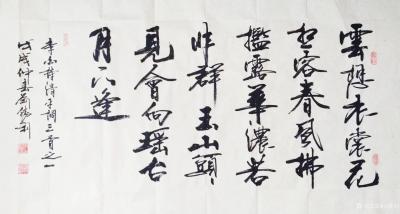 雲想衣裳花
想容春風拂
檻露華濃若
非群玉山頭
見會向瑶台
月下逢
李白詩清平調三首之一
戊戌仲春